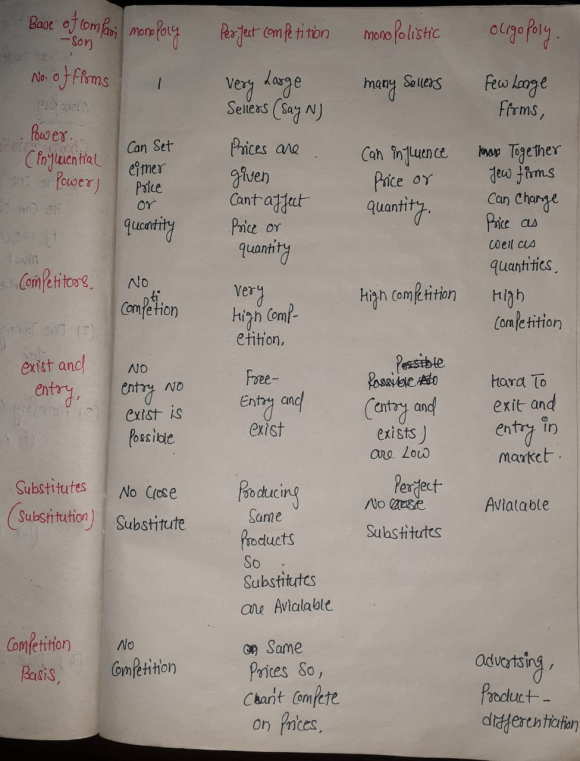 Base of Compari
-son
monopoly
Perfect Competition
monopolistic
oligopoly.
No. of Firms
1
Very Large
Sellers (Say N)
many Sellers
Few Large
Firms,
Power.
(Influential
Power)
Can Set
either
Price
or
quantity
Prices are
given
Cant affect
Price or
quantity
Can influence
Price or
quantity.
Together
few firms
Can Change
Price as
well as
quantities.
Competitors.
No
Competition
Very
High Comp-
etition.
High competition
High
Competition
exist and
entry,
No
entry No
exist is
Possible
Free-
Entry and
exist
Possible
Possible
(entry and
exists)
are Low
Hard To
exit and
entry in
market.
Substitutes
(Substitution)
No Close
Substitute
Producing
Same
Products
So
Substitutes
are Avialable
Perfect
No Close
Substitutes
Avialable
Competition
Basis,
No
Competition
Same
Prices So,
Can't Compete
on Prices,
advertsing,
Product-
differentiation